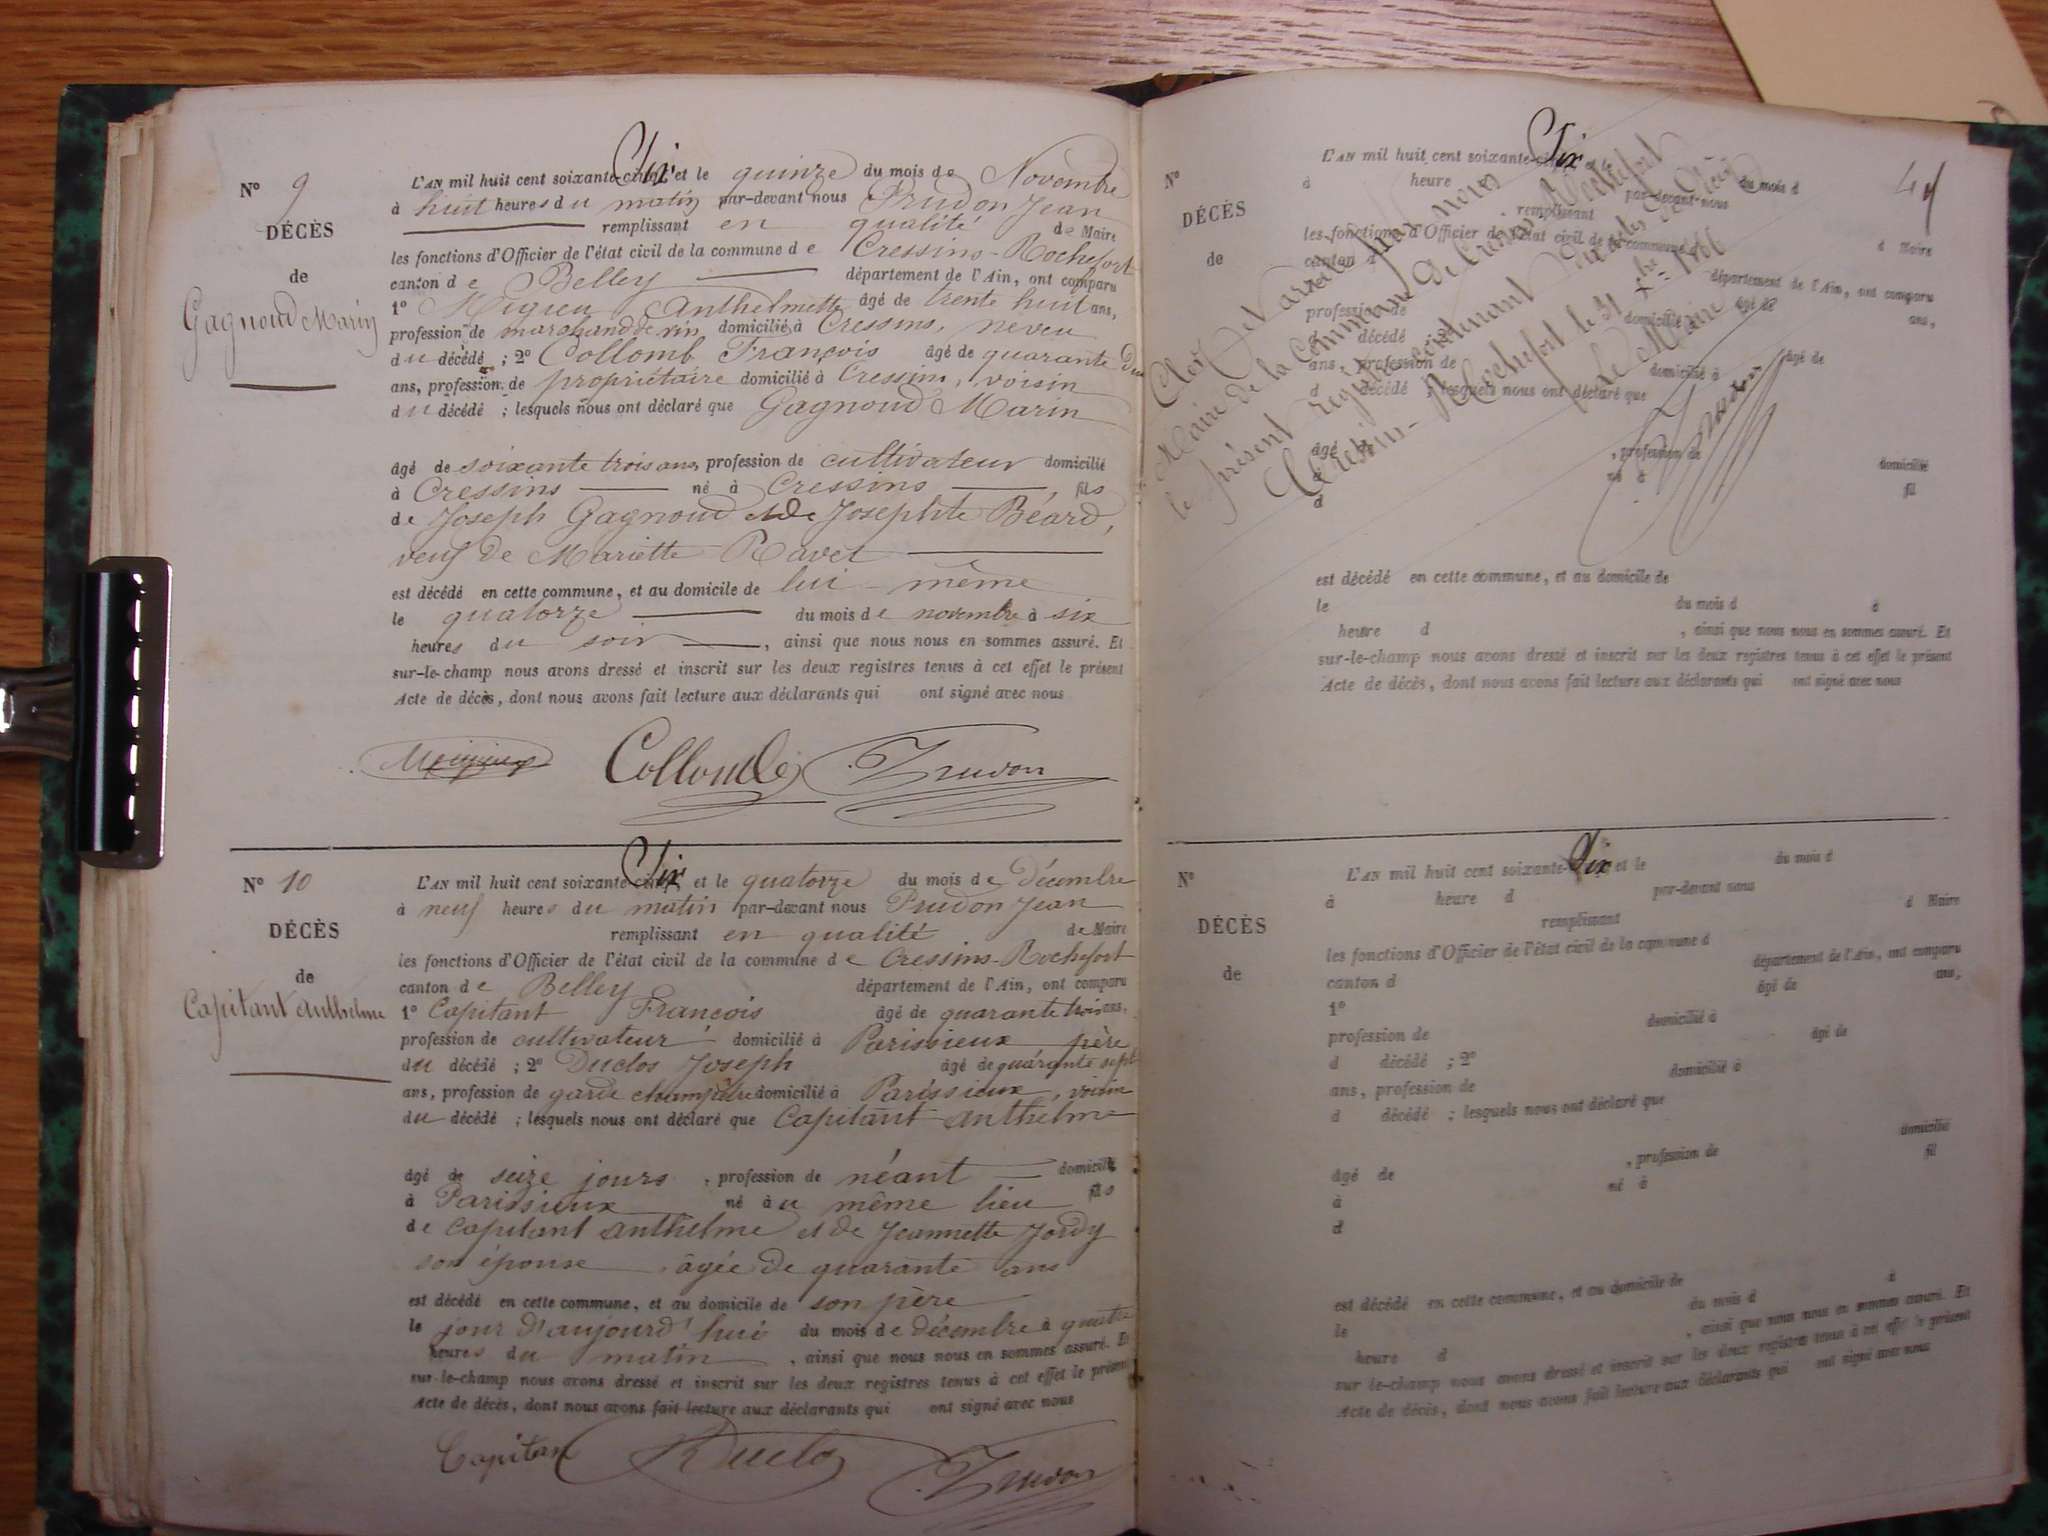 N° 9
DÉCÈS
de
Gagnoud Marin
L'AN mil huit cent soixante-Six et le quinze du mois de Novembre
à huit heures du matin par-devant nous Prudon Jean
remplissant en qualité de Maire
les fonctions d'Officier de l'état civil de la commune de Cressins-Rochefort
canton de Belley département de l'Ain, ont comparu
1° Migieu Anthelmette âgé de trente huit ans,
profession de marchand de vin domicilié à Cressins, neveu
du décédé ; 2° Collomb François âgé de quarante
ans, profession de propriétaire domicilié à Cressins, voisin
du décédé ; lesquels nous ont déclaré que Gagnoud Marin
âgé de soixante trois ans, profession de cultivateur domicilié
à Cressins né à Cressins, fils
de Joseph Gagnoud et de Josephte Béard,
veuf de Mariette Ravet
est décédé en cette commune, et au domicile de lui-même
le quatorze du mois de novembre à six
heures du soir, ainsi que nous nous en sommes assuré. Et
sur-le-champ nous avons dressé et inscrit sur les deux registres tenus à cet effet le présent
Acte de décès, dont nous avons fait lecture aux déclarants qui ont signé avec nous
Collomb Prudon
N° 10
DÉCÈS
de
Capitant Anthelme
L'AN mil huit cent soixante Six et le quatorze du mois de Décembre
à neuf heures du matin par-devant nous Prudon Jean
remplissant en qualité de Maire
les fonctions d'Officier de l'état civil de la commune de Cressins-Rochefort
canton de Belley département de l'Ain, ont comparu
1° Capitant François âgé de quarante trois ans,
profession de cultivateur domicilié à Parissieux père
du décédé ; 2° Duclos Joseph âgé de quarante sept
ans, profession de garde champêtre domicilié à Parissieux, voisin
du décédé ; lesquels nous ont déclaré que Capitant Anthelme
âgé de seize jours, profession de néant domicilié
à Parissieux né au même lieu fils
de Capitant Anthelme et de Jeannette Jordy
son épouse, âgée de quarante ans
est décédé en cette commune, et au domicile de son père
le jour d'aujourd'hui du mois de décembre à quatre
heures du matin, ainsi que nous nous en sommes assuré. Et
sur-le-champ nous avons dressé et inscrit sur les deux registres tenus à cet effet le présent
Acte de décès, dont nous avons fait lecture aux déclarants qui ont signé avec nous
Capitan Duclos Prudon
N°
DÉCÈS
de
L'AN mil huit cent soixante-Six et le du mois d
à heure d par-devant nous
remplissant d Maire
les fonctions d'Officier de l'état civil de la commune d
canton d département de l'Ain, ont comparu
âgé de ans,
profession de domicilié à
d décédé âgé de
ans, profession de domicilié à
d décédé ; lesquels nous ont déclaré que
âgé de , profession de domicilié
à né à fil
d
Clos et arrêté par nous
Maire de la Commune de Cressins-Rochefort
le présent registre contenant dix actes de décès
Cressins-Rochefort le 31 Xbre 1866
le Maire
Prudon
est décédé en cette commune, et au domicile de
le du mois d à
heure d , ainsi que nous nous en sommes assuré. Et
sur-le-champ nous avons dressé et inscrit sur les deux registres tenus à cet effet le présent
Acte de décès, dont nous avons fait lecture aux déclarants qui ont signé avec nous
N°
DÉCÈS
de
L'AN mil huit cent soixante-Six et le du mois d
à heure d par-devant nous
remplissant d Maire
les fonctions d'Officier de l'état civil de la commune d
canton d département de l'Ain, ont comparu
1° âgé de ans,
profession de domicilié à
d décédé ; 2° âgé de
ans, profession de domicilié à
d décédé ; lesquels nous ont déclaré que
âgé de , profession de domicilié
à né à fil
d
est décédé en cette commune, et au domicile de
le du mois d à
heure d , ainsi que nous nous en sommes assuré. Et
sur le-champ nous avons dressé et inscrit sur les deux registres tenus à cet effet le présent
Acte de décès, dont nous avons fait lecture aux déclarants qui ont signé avec nous